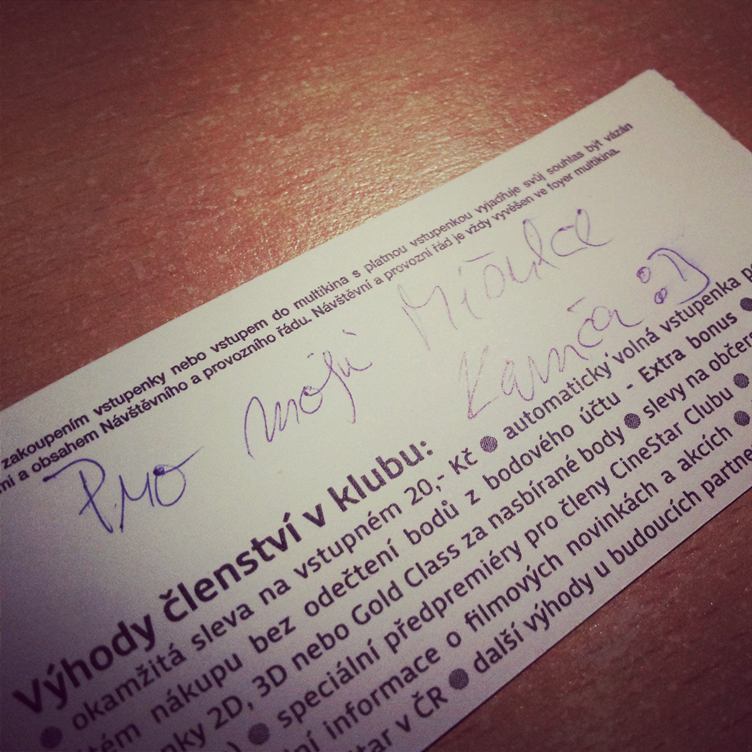 zakoupením vstupenky nebo vstupem do multikina s platnou vstupenkou vyjadřuje svůj souhlas být vázán
ní a obsahem Návštěvního a provozního řádu. Návštěvní a provozní řád je vždy vyvěšen ve foyer multikina.
Pro moji
Kamča :D
Výhody členství v klubu:
● okamžitá sleva na vstupném 20,- Kč ● automatický volná vstupenka p
tém nákupu bez odečtení bodů z bodového účtu - Extra bonus ●
nky 2D, 3D nebo Gold Class za nasbírané body ● slevy na občer
) ● speciální předpremiéry pro členy CineStar Clubu ●
ní informace o filmových novinkách a akcích ●
tar v ČR ● další výhody u budoucích partne